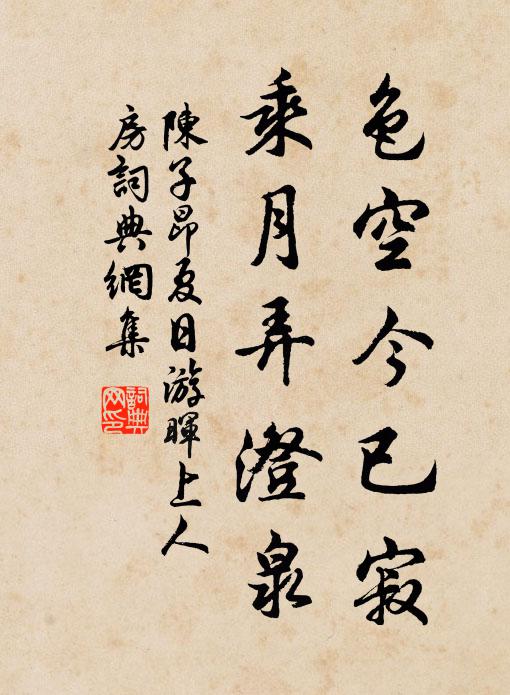 色空今已寂
乘月弄澄泉
陳子昂夏日游暉上人
房詞典網集
詞典
网印